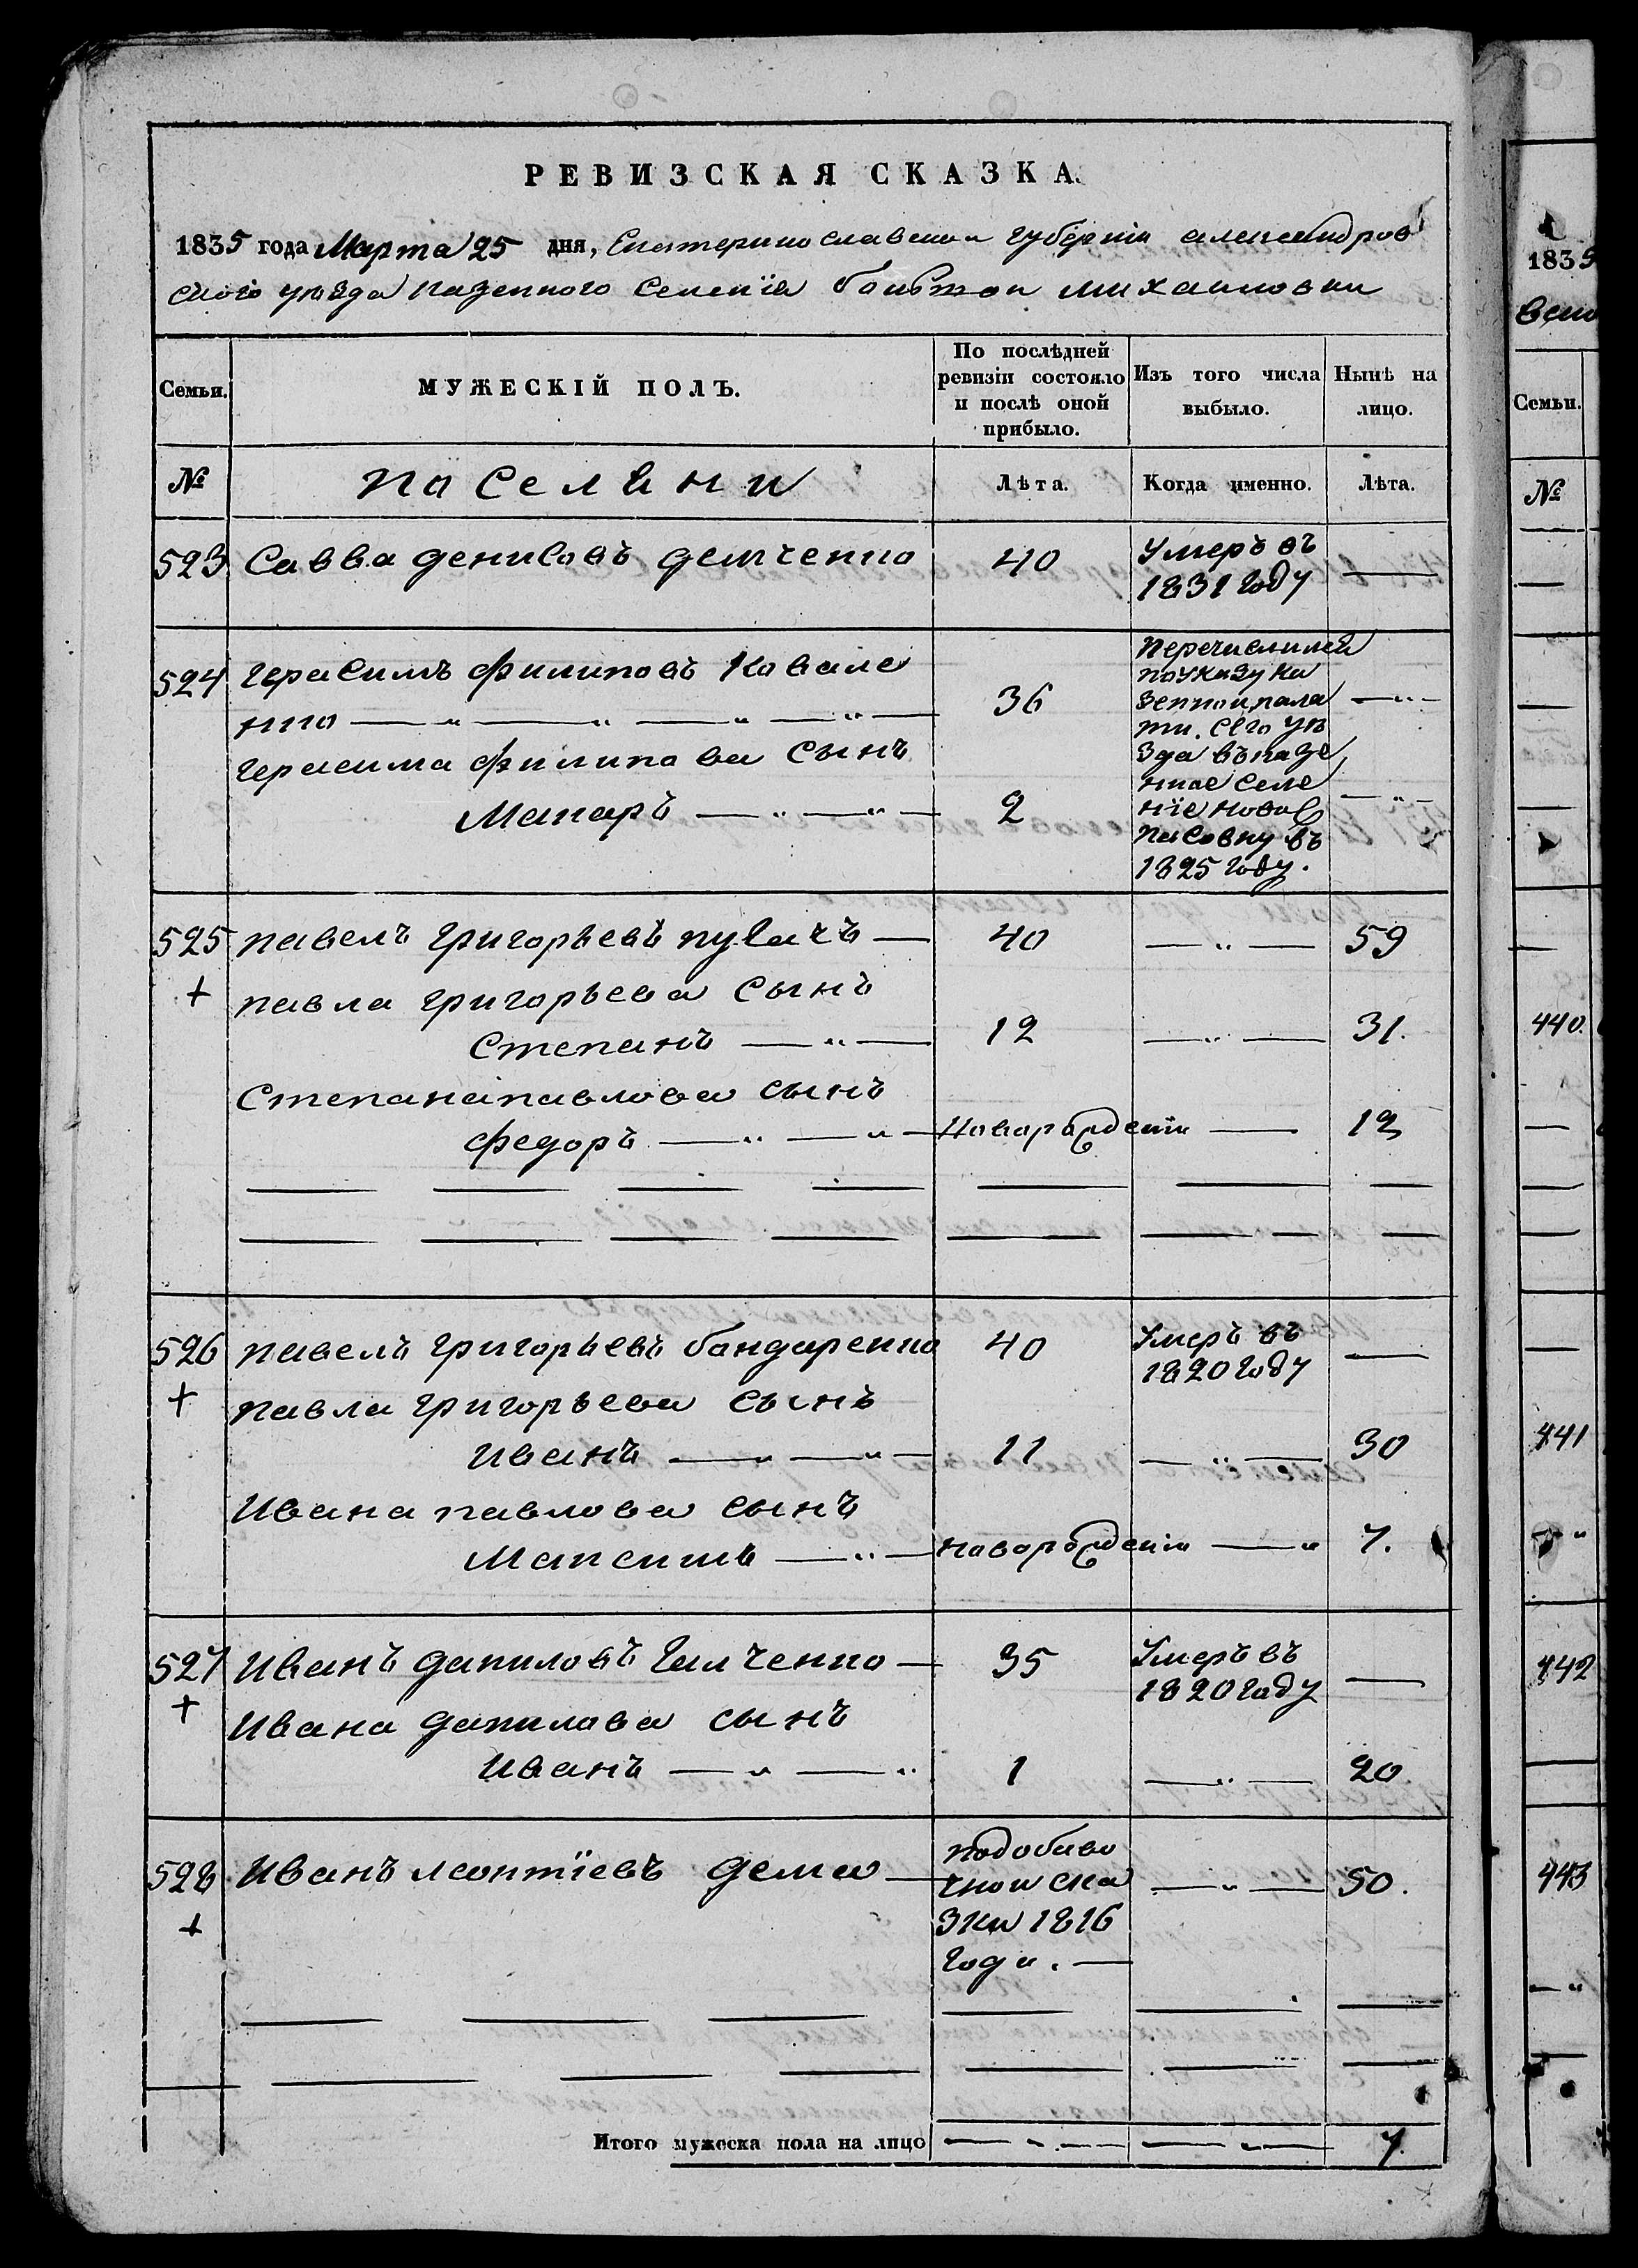 РЕВИЗСКАЯ СКАЗКА.
1835 года Марта 25 дня, Екатеринославской губерніи александров
ского уѣзда казенного селенїя болшои михаиловки
Семьи.
МУЖЕСКІЙ ПОЛЪ.
По послѣдней ревизіи состояло и послѣ оной прибыло.
Изъ того числа выбыло.
Нынѣ на лицо.
№
поселяни
Лѣта.
Когда именно.
Лѣта.
523 Савва денисовъ демченко 40 Умеръ въ
1831 году
524 Герасимъ филиповъ Ковале
нко 36
Герасима филипова сынъ
Макаръ 2
Перечислились
по указу ка
зеннои пала
ти. сего уѣ
зда въ казе
нное селе
нїе новос
пасовку въ
1825 году.
525 павелъ григорьевъ пугачъ 40 59
+ павла григорьева сынъ
Степанъ 12 31.
Степана павлова сынъ
федоръ Новорожденїи 12
526 павелъ григорьевъ бондаренко 40 Умеръ въ
1820 году
+ павла григорьева сынъ
Иванъ 11 30
Ивана павлова сынъ
Максимъ новорожденїи 7.
527 Иванъ даниловъ Галченко 35 Умеръ въ
1820 году
+ Ивана данилова сынъ
Иванъ 1 20.
528 Иванъ леонтїевъ дема подобаво
чнои ска
зки 1816
года. 50.
+
Итого мужеска пола на лицо 7.
1835
Семьи.
№
440.
441
442
443